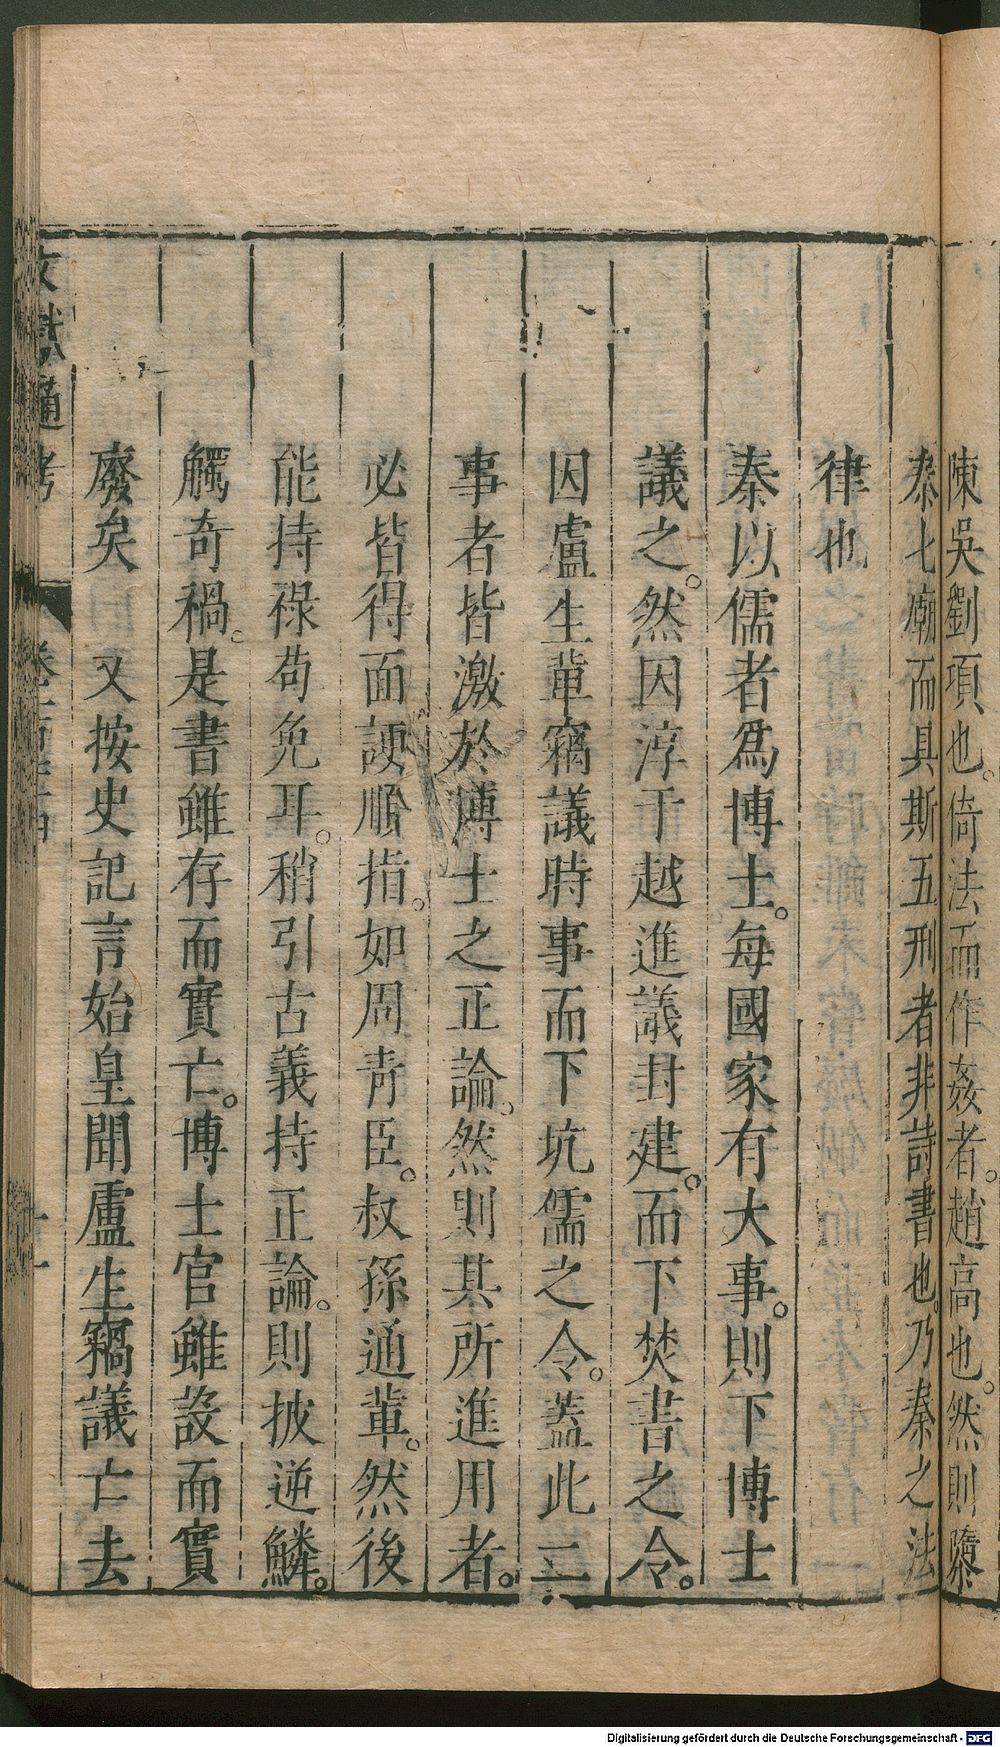 陳吳劉項也。倚法而作姦者。趙高也。然則隳
秦七廟而具斯五刑者非詩書也。乃秦之法
律也
秦以儒者為博士。每國家有大事。則下博士
議之。然因淳于越進議封建。而下焚書之令。
因盧生輩竊議時事而下坑儒之令。蓋此二
事者皆激於博士之正論。然則其所進用者。
必皆得面諛順指。如周青臣。叔孫通輩。然後
能持祿苟免耳。稍引古義持正論。則披逆鱗。
觸奇禍。是書雖存而實亡。博士官雖設而實
廢矣 又按史記言始皇聞盧生竊議亡去
文獻通考
Digitalisierung gefördert durch die Deutsche Forschungsgemeinschaft - DFG